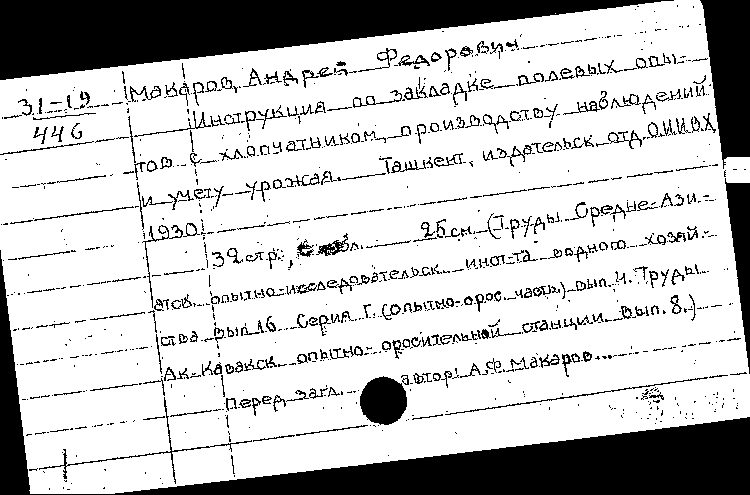 31-19
446
Макаров, Андрей Федорович
Инструкция по закладке полевых опы-
тов с хлопчатником, производству наблюдений
и учету урожая. Ташкент, издательск. отд. ОИИВХ
1930.
32 стр., 25 см. (Труды Средне-Ази-
атск. опытно-исследовательск. инст-та водного хозяй-
ства вып. 16. Серия Г. (опытно-орос. часть.) вып. 4. Труды
Ак-Кавакск. опытно-оросительной станции. Вып. 8.)
Перед загл. автор: А.Ф. Макаров...